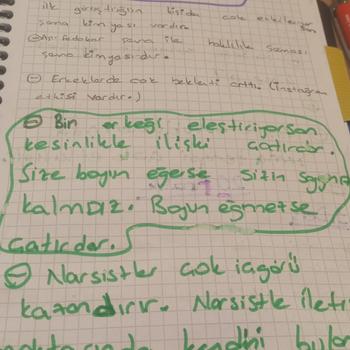 ilk görüştüğün kişide çok etkileniyorsan
sana kimyası vardır.
fedakar sana ile haklılık savması
sana kimyasıdır.
⊖ Erkeklerde çok beklenti arttı. (instagram
etkisi vardır.)
⊖ Bir erkeği eleştiriyorsan
kesinlikle ilişki çatırdar.
Size boyun eğerse sizin saygınız
kalmaz. Boyun eğmezse
çatırdar.
⊖ Narsistler çok içgörü
kazandırır. Narsistle ileti
kendini bulur